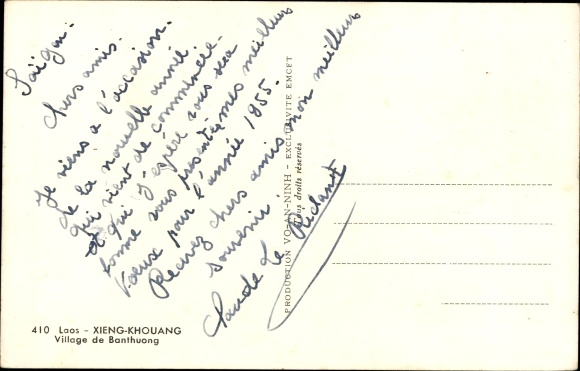 Saïgon.
Chers amis.
Je viens a l'occasion.
de la nouvelle année
qui vient de commencée-
et qui j'espère vous sera
bonne vous présenter mes meilleurs
Voeux pour l'année 1955.
Recevez chers amis mon meilleur
souvenir.
Claude le
PRODUCTION VO-AN-NINH - EXCLUSIVITE EMCET
Tous droits réservés
410 Laos - XIENG-KHOUANG
Village de Banthuong